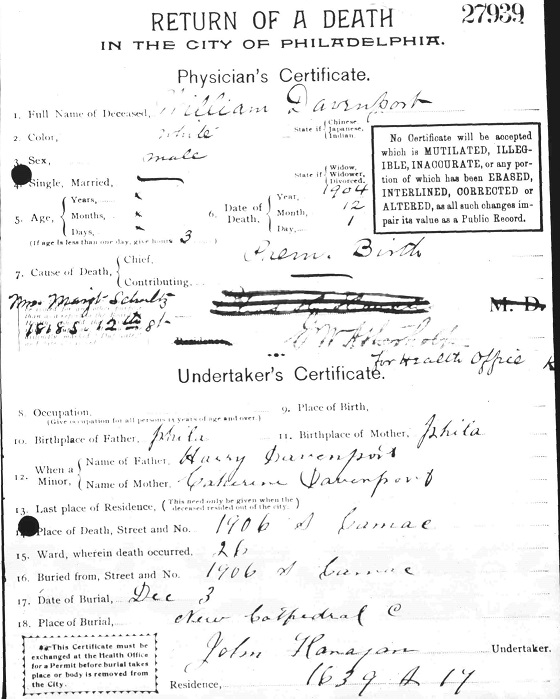 27939
RETURN OF A DEATH
IN THE CITY OF PHILADELPHIA.
Physician's Certificate.
1. Full Name of Deceased, William Davenport
2. Color, white State if { Chinese, Japanese, Indian.
3. Sex, male
No Certificate will be accepted
which is MUTILATED, ILLEG-
IBLE, INACOURATE, or any por-
tion of which has been ERASED,
INTERLINED, CORRECTED or
ALTERED, as all such changes im-
pair its value as a Public Record.
4. Single, Married, State if { Widow, Widower, Divorced.
5. Age, { Years, Months, Days,
6. Date of Death, { Year, 1904
Month, 12
Day, 1
(If age is less than one day, give hours 3 )
7. Cause of Death, { Chief, Prem. Birth
Contributing,
Mrs. Margt Schultz
1818 S. 12th St M. D.
Residence,
For Health Office
Undertaker's Certificate.
8. Occupation, 9. Place of Birth,
(Give occupation for all persons 15 years of age and over)
10. Birthplace of Father, Phila 11. Birthplace of Mother, Phila
12. When a Minor, { Name of Father, Harry Davenport
Name of Mother, Catherine Davenport
13. Last place of Residence, (This need only be given when the deceased resided out of the city.)
14. Place of Death, Street and No. 1906 S Camac
15. Ward, wherein death occurred, 26
16. Buried from, Street and No. 1906 S Camac
17. Date of Burial, Dec 3
18. Place of Burial, New Cathedral C
This Certificate must be
exchanged at the Health Office
for a Permit before burial takes
place or body is removed from
the City.
John Flanagan Undertaker.
Residence, 1639 S 17